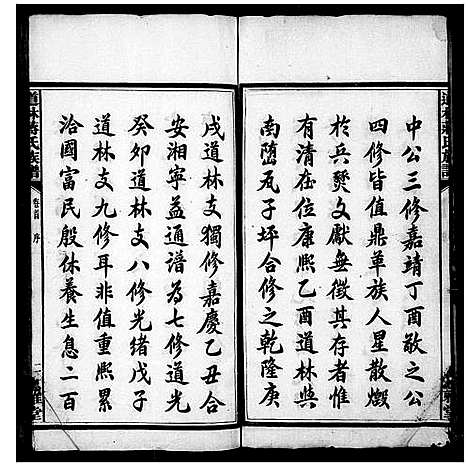 中公三修嘉靖丁酉敬之公
四修皆值鼎革族人星散燬
於兵燹文獻無徵其存者惟
有清在位康熙乙酉道林與
南塘瓦子坪合修之乾隆庚
戌道林支獨修嘉慶乙丑合
安湘寧益通譜為七修道光
癸卯道林支八修光緒戊子
道林支九修耳非值重熙累
洽國富民殷休養生息二百
道林蔣氏族譜
卷首 序